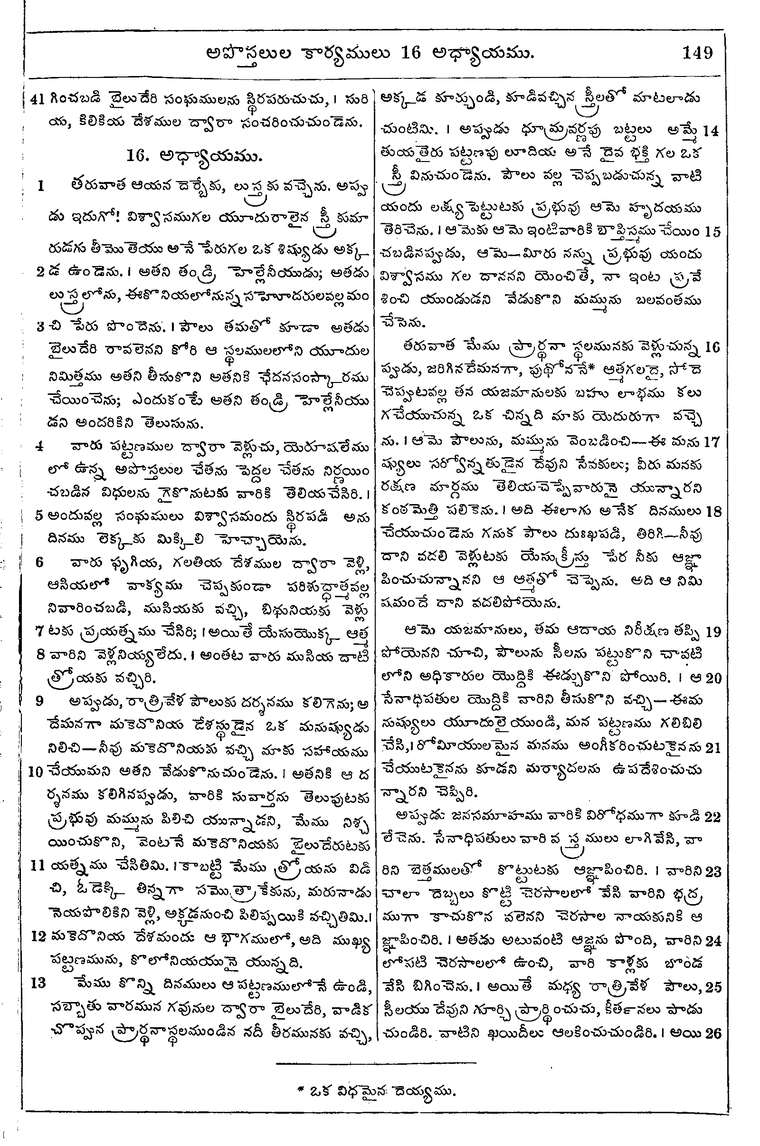 అపొస్తలుల కార్యములు 16 అధ్యాయము. 149
41 గించబడి బైలుదేరి సంఘములను స్థిరపరుచుచు, । సురి
య, కిలికియ దేశముల ద్వారా సంచరించుచుండెను.
16. అధ్యాయము.
1 తరువాత ఆయన దెర్బేకు, లుస్త్రకు వచ్చెను. అప్పు
డు ఇదుగో! విశ్వాసముగల యూదురాలైన స్త్రీ కుమా
రుడగు తీమొతెయు అనే పేరుగల ఒక శిష్యుడు అక్క
2 డ ఉండెను. । అతని తండ్రి హెల్లేనీయుడు; అతడు
లుస్త్రలోను, ఈకొనియలోనున్న సహెూదరులవల్ల మం
3 చి పేరు పొందెను. । పౌలు తమతో కూడా అతడు
బైలుదేరి రావలెనని కోరి ఆ స్థలములలోని యూదుల
నిమిత్తము అతని తీసుకొని అతనికి ఛేదనసంస్కారము
చేయించెను; ఎందుకంటే అతని తండ్రి హెల్లేనీయు
డని అందరికిని తెలుసును.
4 వారు పట్టణముల ద్వారా వెళ్లుచు, యెరూషలేము
లో ఉన్న అపొస్తలుల చేతను పెద్దల చేతను నిర్ణయిం
చబడిన విధులను గైకొనుటకు వారికి తెలియచేసిరి. ।
5 అందువల్ల సంఘములు విశ్వాసమందు స్థిరపడి అను
దినము లెక్కకు మిక్కిలి హెచ్చాయెను.
6 వారు ఫృగియ, గలతియ దేశముల ద్వారా వెళ్లి,
ఆసియలో వాక్యము చెప్పకుండా పరిశుద్ధాత్మవల్ల
నివారించబడి, ముసియకు వచ్చి, బిథునియకు వెళ్లు
7 టకు ప్రయత్నము చేసిరి; । అయితే యేసుయొక్క ఆత్మ
8 వారిని వెళ్లనియ్యలేదు. । అంతట వారు ముసియ దాటి
త్రోయకు వచ్చిరి.
9 అప్పుడు, రాత్రివేళ పౌలుకు దర్శనము కలిగెను; అ
దేమనగా మకెదొనియ దేశస్థుడైన ఒక మనుష్యుడు
నిలిచి—నీవు మకెదొనియకు వచ్చి మాకు సహాయము
10 చేయుమని అతని వేడుకొనుచుండెను. । అతనికి ఆ ద
ర్శనము కలిగినప్పుడు, వారికి సువార్తను తెలుపుటకు
ప్రభువు మమ్మును పిలిచి యున్నాడని, మేము నిశ్చ
యించుకొని, వెంటనే మకెదొనియకు బైలుదేరుటకు
11 యత్నము చేసితిమి. । కాబట్టి మేము త్రోయను విడి
చి, ఓడెక్కి తిన్నగా సమొత్రాకేకును, మరునాడు
నెయపొలికిని వెళ్లి, అక్కడనుంచి పిలిప్పయికి వచ్చితిమి. ।
12 మకెదొనియ దేశమందు ఆ భాగములో, అది ముఖ్య
పట్టణమును, కొలోనియయునై యున్నది.
13 మేము కొన్ని దినములు ఆ పట్టణములోనే ఉండి,
సబ్బాతు వారమున గవునుల ద్వారా బైలుదేరి, వాడిక
చొప్పున ప్రార్థనాస్థలముండిన నదీ తీరమునకు వచ్చి,
అక్కడ కూర్చుండి, కూడివచ్చిన స్త్రీలతో మాటలాడు
చుంటిమి. । అప్పుడు ధూమ్రవర్ణపు బట్టలు అమ్మే 14
తుయతైరు పట్టణపు లూదియ అనే దైవ భక్తి గల ఒక
స్త్రీ వినుచుండెను. పౌలు వల్ల చెప్పబడుచున్న వాటి
యందు లక్ష్యపెట్టుటకు ప్రభువు ఆమె హృదయము
తెరిచెను. । ఆమెకు ఆమె ఇంటివారికి బాప్తిస్మము చేయిం 15
చబడినప్పుడు, ఆమె—మీరు నన్ను ప్రభువు యందు
విశ్వాసము గల దాననని యెంచితే, నా ఇంట ప్రవే
శించి యుండుడని వేడుకొని మమ్మును బలవంతము
చేసెను.
తరువాత మేము ప్రార్థనా స్థలమునకు వెళ్లుచున్న 16
ప్పుడు, జరిగినదేమనగా, పుథోననే* ఆత్మగలదై, సోదె
చెప్పుటవల్ల తన యజమానులకు బహు లాభము కలు
గచేయుచున్న ఒక చిన్నది మాకు యెదురుగా వచ్చె
ను. । ఆమె పౌలును, మమ్మును వెంబడించి—ఈ మను 17
ష్యులు సర్వోన్నతుడైన దేవుని సేవకులు; వీరు మనకు
రక్షణ మార్గము తెలియచెప్పేవారునై యున్నారని
కంఠమెత్తి పలికెను. । అది ఈలాగు అనేక దినములు 18
చేయుచుండెను గనుక పౌలు దుఃఖపడి, తిరిగి—నీవు
దాని వదలి వెళ్లుటకు యేసుక్రీస్తు పేర నీకు ఆజ్ఞా
పించుచున్నానని ఆ ఆత్మతో చెప్పెను. అది ఆ నిమి
షమందే దాని వదలిపోయెను.
ఆమె యజమానులు, తమ ఆదాయ నిరీక్షణ తప్పి 19
పోయెనని చూచి, పౌలును సీలను పట్టుకొని చావటి
లోని అధికారుల యొద్దికి ఈడ్చుకొని పోయిరి. । ఆ 20
సేనాధిపతుల యొద్దికి వారిని తీసుకొని వచ్చి—ఈమ
నుష్యులు యూదులైయుండి, మన పట్టణము గలిబిలి
చేసి, । రోమీయులమైన మనము అంగీకరించుటకైనను 21
చేయుటకైనను కూడని మర్యాదలను ఉపదేశించుచు
న్నారని చెప్పిరి.
అప్పుడు జనసమూహము వారికి విరోధముగా కూడి 22
లేచెను. సేనాధిపతులు వారి వస్త్రములు లాగివేసి, వా
రిని బెత్తములతో కొట్టుటకు ఆజ్ఞాపించిరి. । వారిని 23
చాలా దెబ్బలు కొట్టి చెరసాలలో వేసి వారిని భద్ర
ముగా కాచుకొన వలెనని చెరసాల నాయకునికి ఆ
జ్ఞాపించిరి. । అతడు అటువంటి ఆజ్ఞను పొంది, వారిని 24
లోపటి చెరసాలలో ఉంచి, వారి కాళ్లకు బొండ
వేసి బిగించెను. । అయితే మధ్య రాత్రివేళ పౌలు, 25
సీలయు దేవుని గూర్చి ప్రార్థించుచు, కీర్తనలు పాడు
చుండిరి. వాటిని ఖయిదీలు ఆలకించుచుండిరి. । అయి 26
* ఒక విధమైన దెయ్యము.